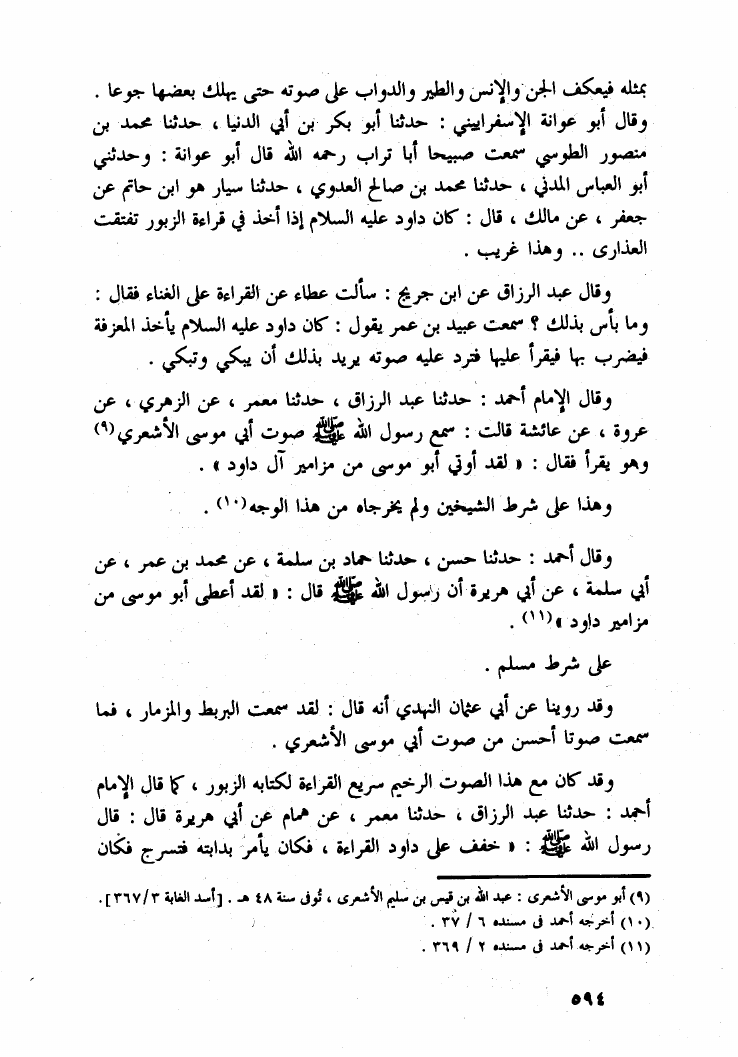 بمثله فيعكف الجن والإنس والطير والدواب على صوته حتى يهلك بعضها جوعا .
وقال أبو عوانة الإسفراييني : حدثنا أبو بكر بن أبي الدنيا ، حدثنا محمد بن
منصور الطوسي سمعت صبيحا أبا تراب رحمه الله قال أبو عوانة : وحدثني
أبو العباس المدني ، حدثنا محمد بن صالح العدوي ، حدثنا سيار هو ابن حاتم عن
جعفر ، عن مالك ، قال : كان داود عليه السلام إذا أخذ في قراءة الزبور تفتقت
العذارى .. وهذا غريب .
وقال عبد الرزاق عن ابن جريج : سألت عطاء عن القراءة على الغناء فقال :
وما بأس بذلك ؟ سمعت عبيد بن عمر يقول : كان داود عليه السلام يأخذ المعزفة
فيضرب بها فيقرأ عليها فترد عليه صوته يريد بذلك أن يبكي وتبكي .
وقال الإمام أحمد : حدثنا عبد الرزاق ، حدثنا معمر ، عن الزهري ، عن
عروة ، عن عائشة قالت : سمع رسول الله ﷺ صوت أبي موسى الأشعري(٩)
وهو يقرأ فقال : « لقد أوتي أبو موسى من مزامير آل داود » .
وهذا على شرط الشيخين ولم يخرجاه من هذا الوجه(١٠) .
وقال أحمد : حدثنا حسن ، حدثنا حماد بن سلمة ، عن محمد بن عمر ، عن
أبي سلمة ، عن أبي هريرة أن رسول الله ﷺ قال : « لقد أعطى أبو موسى من
مزامير داود »(١١) .
على شرط مسلم .
وقد روينا عن أبي عثمان النهدي أنه قال : لقد سمعت البربط والمزمار ، فما
سمعت صوتا أحسن من صوت أبي موسى الأشعري .
وقد كان مع هذا الصوت الرخيم سريع القراءة لكتابه الزبور ، كما قال الإمام
أحمد : حدثنا عبد الرزاق ، حدثنا معمر ، عن همام عن أبي هريرة قال : قال
رسول الله ﷺ : « خفف على داود القراءة ، فكان يأمر بدابته فتسرج فكان
(٩) أبو موسى الأشعرى : عبد الله بن قيس بن سليم الأشعرى ، تُوفى سنة ٤٨ هـ . [أسد الغابة ٣/٣٦٧].
(١٠) أخرجه أحمد فى مسنده ٦ / ٣٧ .
(١١) أخرجه أحمد فى مسنده ٢ / ٣٦٩ .
٥٩٤